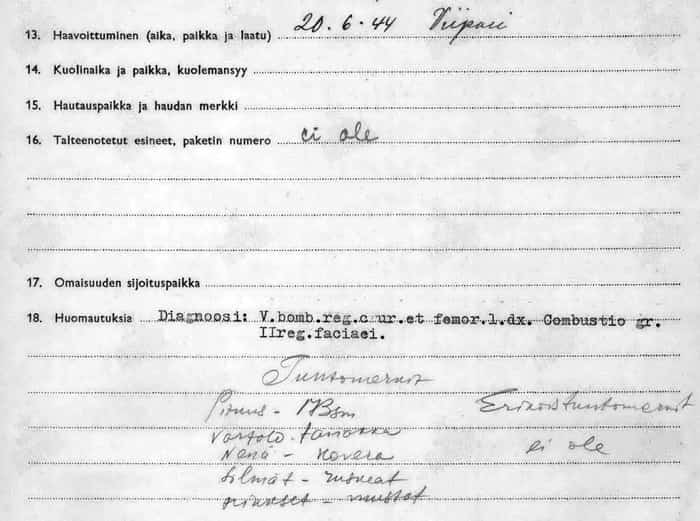 13. Haavoittuminen (aika, paikka ja laatu) 20.6.44 Viipuri
14. Kuolinaika ja paikka, kuolemansyy
15. Hautauspaikka ja haudan merkki
16. Talteenotetut esineet, paketin numero ei ole
17. Omaisuuden sijoituspaikka
18. Huomautuksia Diagnoosi: V.bomb.reg.c ur.et femor.l.dx. Combustio gr.
IIreg.faciaei.
Tuntomerkit
Pituus - Erikoistuntomerkit
Vartalo - tanakka
Nenä - kovera ei ole
Silmät - ruskeat
Hiukset - mustat